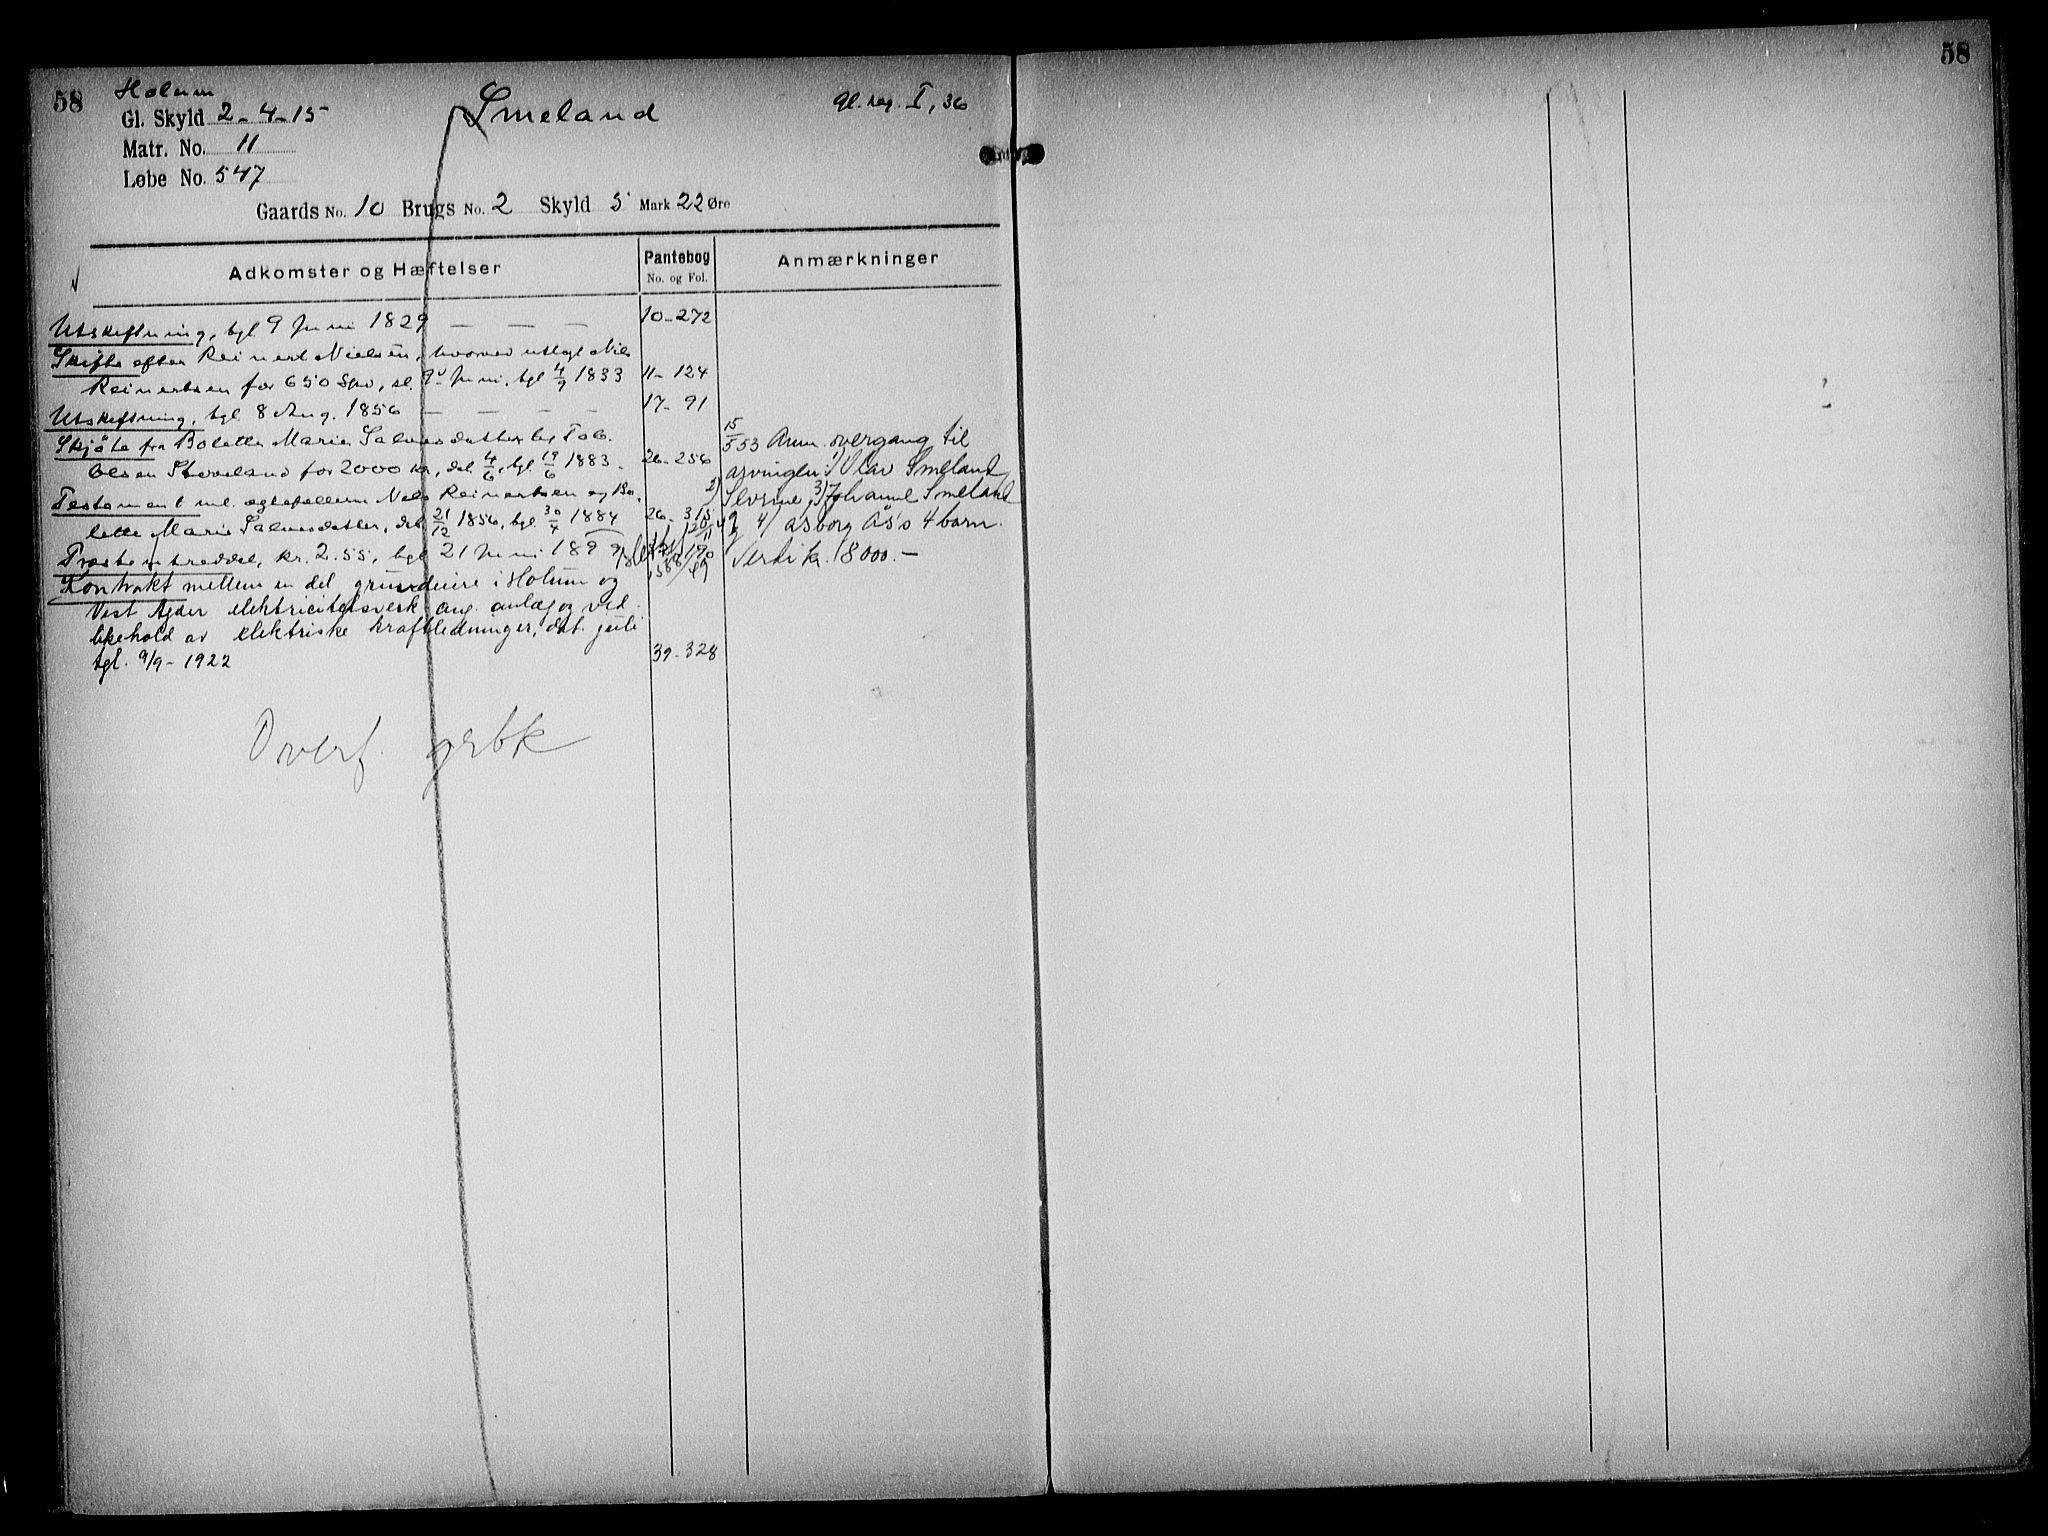 58
Holum
Gl. Skyld 2-4-15
Smeland
gl. reg. I, 36
Matr. No. 11
Løbe No. 547
Gaards No. 10 Brugs No. 2 Skyld 5 Mark 22 Øre
Adkomster og Hæftelser
Pantebog
No. og Fol.
Anmærkninger
Utskiftning, tgl 9 Juni 1829 — — — 10-272
Skifte efter Reinert Nielsen, hvorved utlagt Niels
Reinertsen for 650 Spd, sl. 9 Juni, tgl 4/9 1833 11-124
Utskiftning, tgl 8 Aug. 1856 — — — — 17-91
Skjøte fra Bolette Marie Salvesdatter til Tob.
Olsen Stoveland for 2000 kr, dat 4/6, tgl 19/6 1883. 26-256
Testament ml. ægtefellerne Niels Reinertsen og Bo-
lette Marie Salvesdatter, dat 21/12 1856, tgl 30/4 1884 26-315
kr. 2.55, tgl 21 Juni 1899
Kontrakt mellem en del grundeiere i Holum og
Vest Agder elektricitetsverk ang. anlæg og ved-
likehold av elektriske kraftledninger, dat. juli
tgl. 9/9-1922 39-328
15/5 53 Anm. overgang til
arvingene: 1) Olav Smeland
2) Severine, 3) Johanne Smeland
4) Åsborg Ås's 4 barn.
Verdi kr. 8000.-
Overf. grbk
58